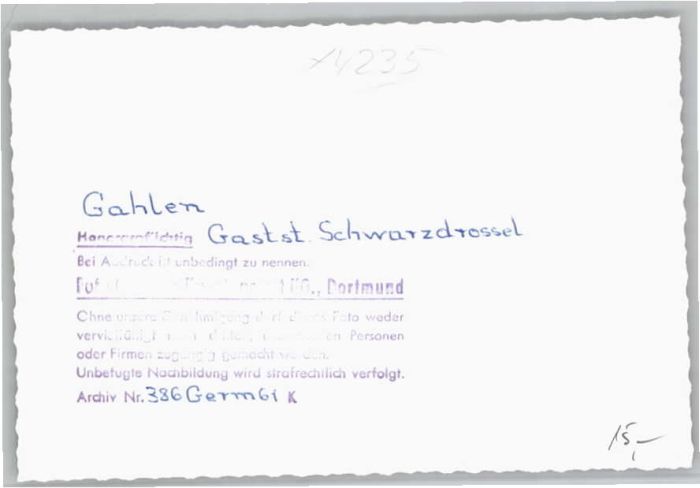 x4235
Gahlen
Honorarpflichtig Gastst. Schwarzdrossel
Bei Abdruck ist unbedingt zu nennen:
KG., Dortmund
Ohne unsere Genehmigung darf dieses Foto weder
vervielfältigt noch dritten Personen
oder Firmen zugängig gemacht werden.
Unbefugte Nachbildung wird strafrechtlich verfolgt.
Archiv Nr. 386 Germ 61 K
15,-